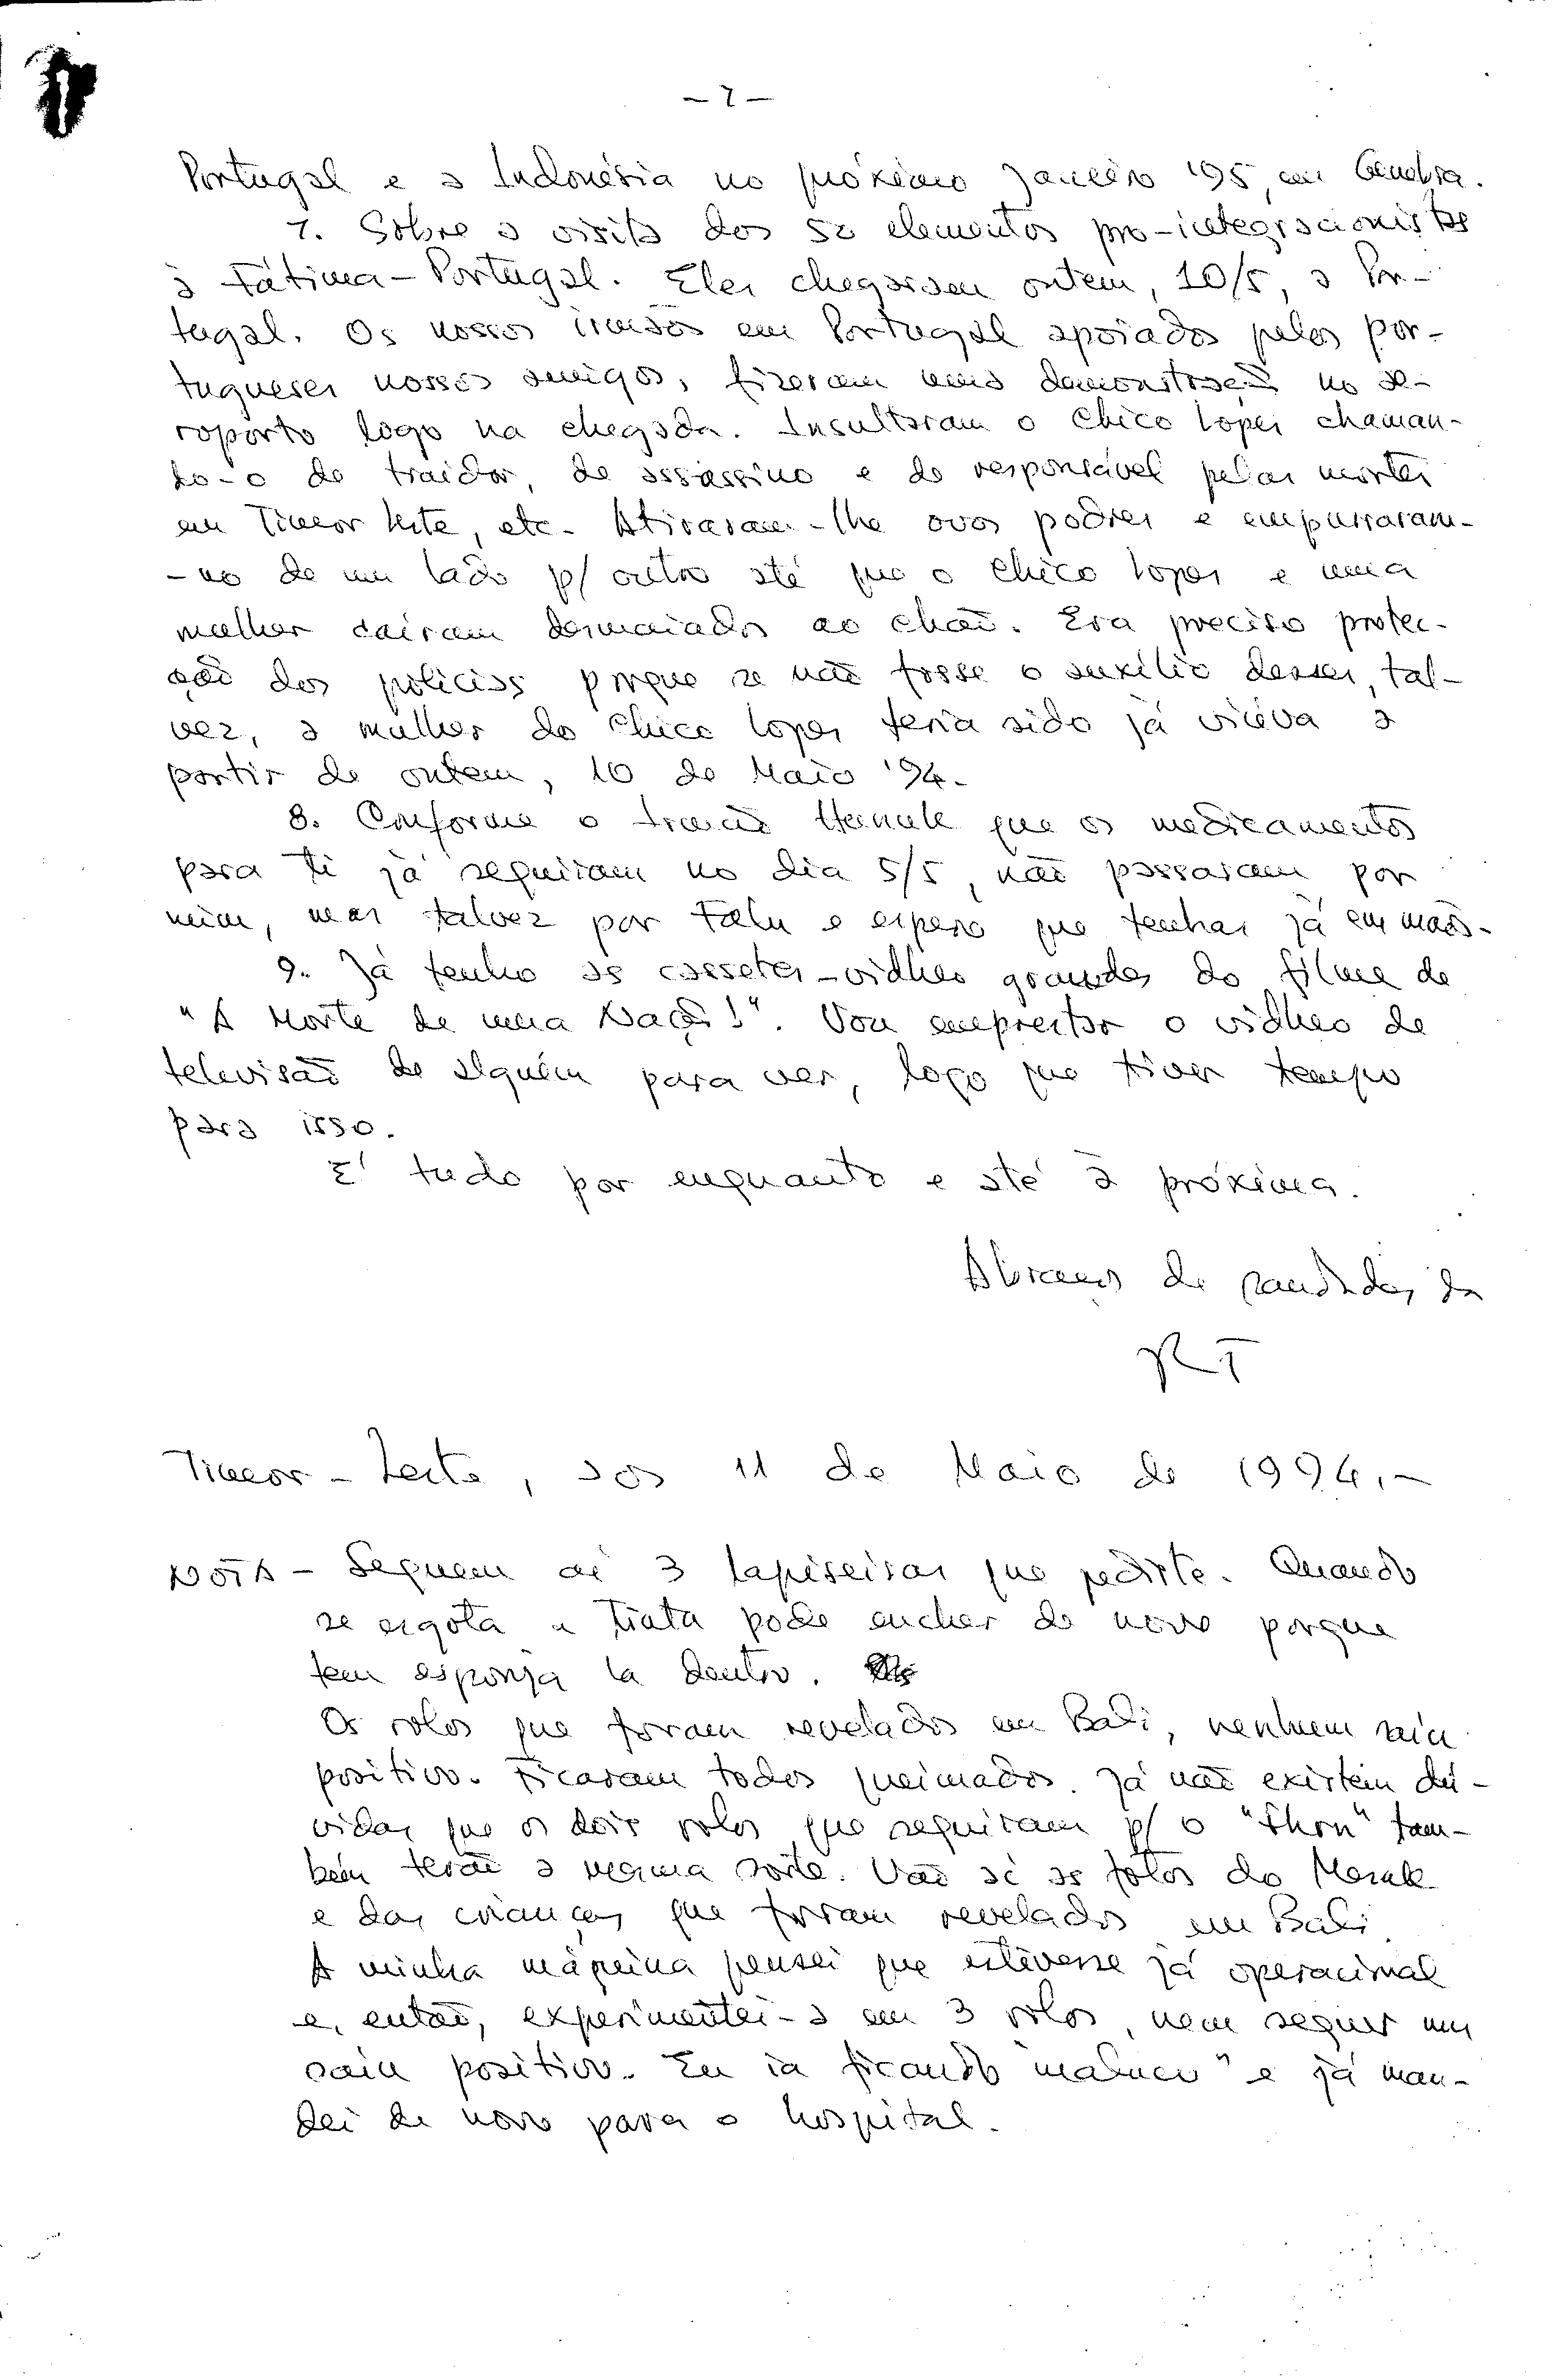 - 7 -
Portugal e a Indonésia no próximo Janeiro '95, em Genebra.
7. Sobre a visita dos 50 elementos pro-integracionistas
à Fátima - Portugal. Eles chegaram ontem, 10/5, a Por-
tugal. Os nossos irmãos em Portugal apoiados pelos por-
tugueses nossos amigos, fizeram uma demonstração no ae-
roporto logo na chegada. Insultaram o Chico Lopes chaman-
do-o de traidor, de assassino e do responsável pelas mortes
em Timor Leste, etc. Atiraram-lhe ovos podres e empurraram-
-no de um lado p/ outro até que o Chico Lopes e uma
mulher caíram desmaiados ao chão. Era preciso protec-
ção dos polícias porque se não fosse o auxílio desses, tal-
vez, a mulher do Chico Lopes teria sido já viúva a
partir de ontem, 10 de Maio '94.
8. Conforme o irmão que os medicamentos
para ti já seguiram no dia 5/5, não passaram por
mim, mas talvez por e espero que tenhas já em mãos.
9. Já tenho as cassetes-vídheo grandes do filme de
"A Morte de uma Nação!". Vou emprestar o vídheo de
televisão de alguém para ver, logo que tiver tempo
para isso.
E' tudo por enquanto e até à próxima.
Abraços de saudades, do
RT
Timor-Leste, aos 11 de Maio de 1994.-
NOTA - Seguem aí 3 lapiseiras que pediste. Quando
se esgota a tinta pode encher de novo porque
tem esponja la dentro.
Os rolos que foram revelados em Bali, nenhum saiu
positivo. Ficaram todos queimados. Já não existem dú-
vidas que os dois rolos que seguiram p/ o tam-
bém terão a mesma sorte. Vão só as fotos do
e das crianças que foram revelados em Bali.
A minha máquina pensei que estivesse já operacional
e, então, experimentei-a em 3 rolos, nem sequer um
saiu positivo. Eu ia ficando "maluco" e já man-
dei de novo para o hospital.